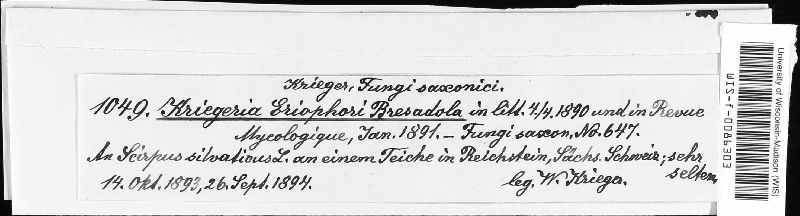 Krieger, Fungi saxonici.
1049. Kriegeria Eriophori Bresadola in litt. 4./4. 1890 und in Revue
Mycologique, Jan. 1891. – Fungi saxon. No. 647.
An Scirpus silvaticus L. an einem Teiche in Reichstein, Sächs. Schweiz; sehr selten,
14. Okt. 1893, 26. Sept. 1894. leg. W. Krieger.
University of Wisconsin-Madison (WIS)